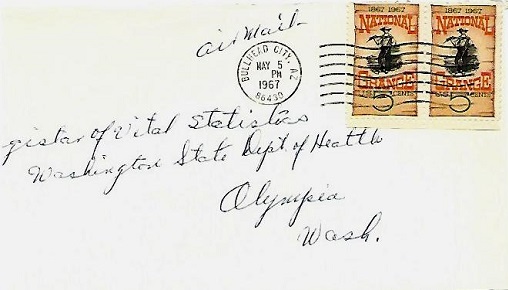 1867 1967 1867 1967
NATIONAL NATIONAL
GRANGE GRANGE
5 CENTS 5 CENTS
air Mail
BULLHEAD CITY, AZ
MAY 5
PM
1967
86430
gistar of Vital Statistics
Washington State Dept of Health
Olympia
Wash.